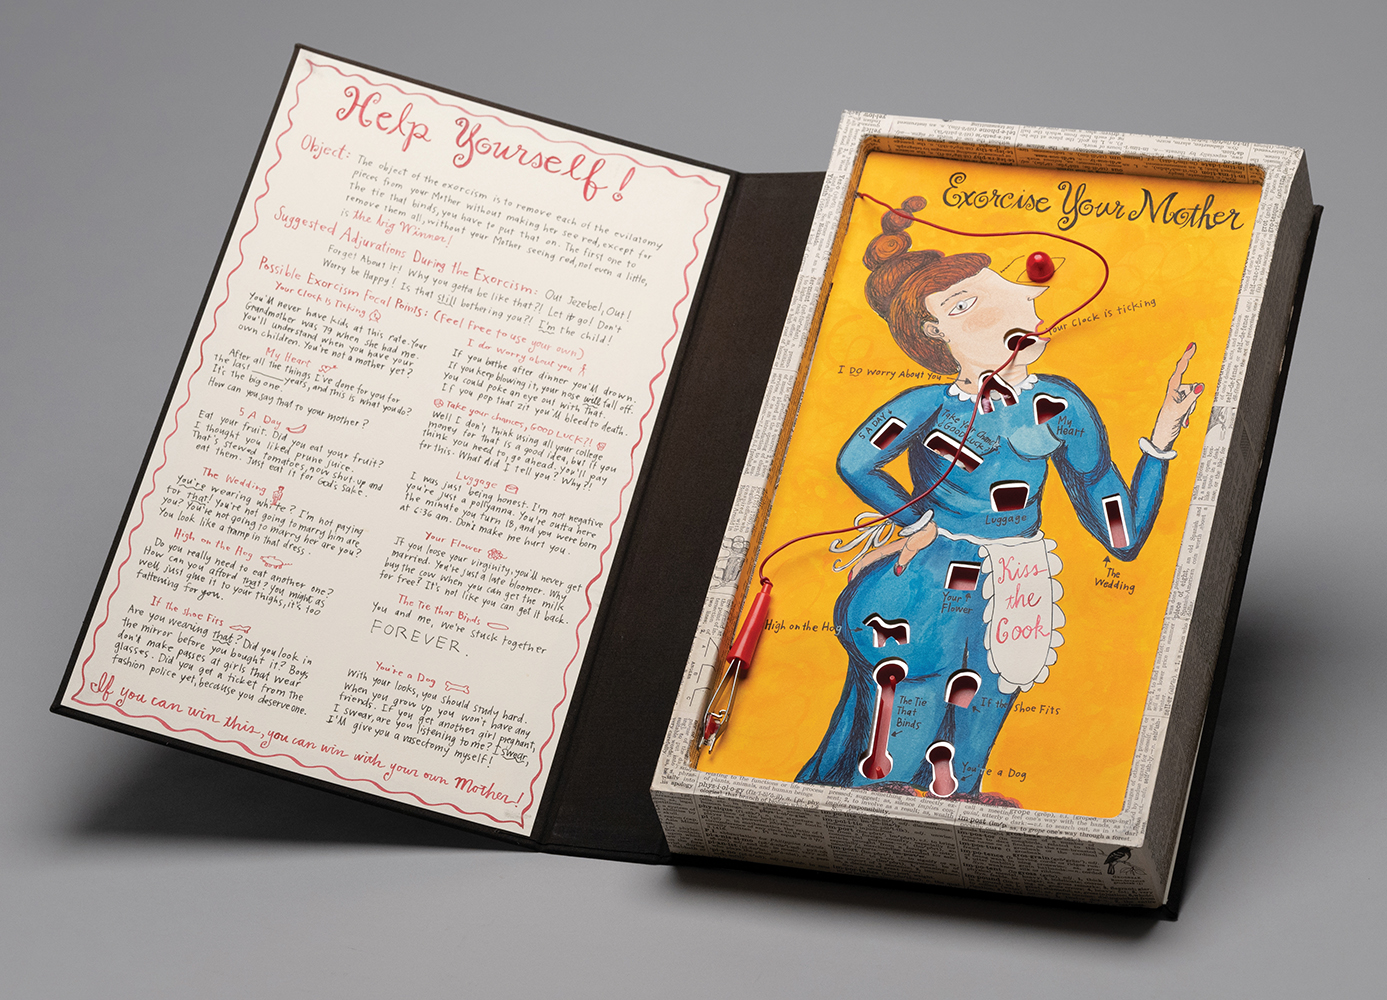 Help Yourself!
Object: The object of the exorcism is to remove each of the evilatomy
pieces from your Mother without making her see red, except for
The tie that binds, you have to put that on. The first one to
remove them all, without your Mother seeing red, not even a little,
is the Big Winner!
Suggested Adjurations During the Exorcism: Out Jezebel, Out!
Forge! About It! Why you gotta be like that?! Let it go! Don't
Worry be Happy! Is that still bothering you?! I'm the child!
Possible Exorcism Focal Points: (Feel free to use your own)
Your Clock is Ticking
You'll never have kids at this rate. Your
Grandmother was 79 when she had me.
You'll understand when you have your
own children. You're not a mother yet?
My Heart
After all the things I've done for you for
the last ___ years, and this is what you do?
It's the big one.
How can you say that to your mother?
5 A Day
Eat your fruit. Did you eat your fruit?
I thought you liked prune juice.
That's Stewed tomatoes, now shut up and
eat them. Just eat it for God's sake.
The Wedding
You're wearing white? I'm not paying
for that! You're not going to marry him are
you? You're not going to marry her are you?
You look like a tramp in that dress.
High on the Hog
Do you really need to eat another one?
How can you afford that? You might as
well just glue it to your thighs, it's too
fattening for you.
If the Shoe Fits
Are you wearing that? Did you look in
the mirror before you bought it? Boys
don't make passes at girls that wear
glasses. Did you get a ticket from the
fashion police yet, because you deserve one.
I do worry about you
If you bathe after dinner you'll drown.
If you keep blowing it, your nose will fall off.
You could poke an eye out with That.
If you pop that zit you'll bleed to death.
Take your chances, GOOD LUCK?!
Well I don't think using all your college
money for that is a good idea, but if you
think you need to, go ahead. You'll pay
for this. What did I tell you? Why?!
Luggage
I was just being honest. I'm not negative
you're just a pollyanna. You're outta here
the minute you turn 18, and you were born
at 6:36 am. Don't make me hurt you.
Your Flower
If you loose your virginity, you'll never get
married. You're just a late bloomer. Why
buy the cow when you can get the milk
for free? It's not like you can get it back.
The Tie that Binds
You and me, we're stuck together
FOREVER.
You're a Dog
With your looks, you should study hard.
When you grow up you won't have any
friends. If you get another girl pregnant,
I swear, are you listening to me? I swear,
I'll give you a vasectomy myself!
If you can win this, you can win with your own Mother!
Exorcise Your Mother
Your Clock is ticking
I DO Worry About You
5 A DAY
Take Your Chances
GOOD LUCK
My
Heart
Luggage
The
Wedding
Kiss
the
Cook
Your
Flower
High on the Hog
The Tie
That
Binds
If the Shoe Fits
You're a Dog